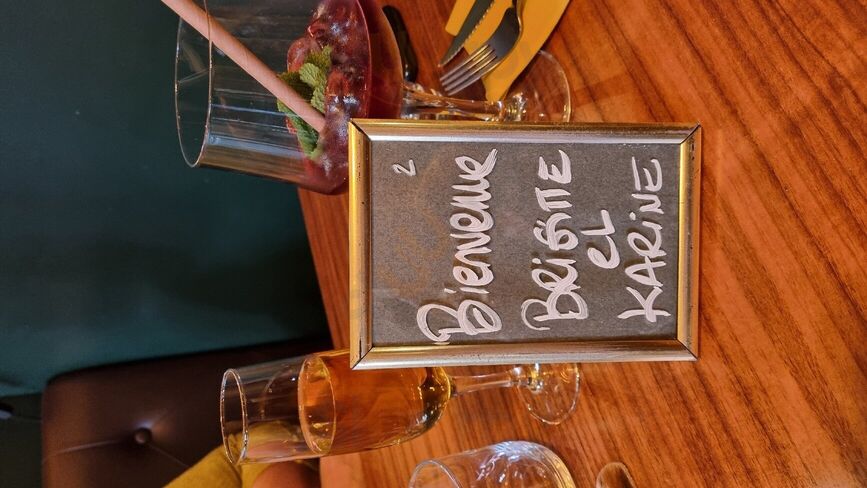 2
Bienvenue
BRiGiTTE
eL
KARiNE